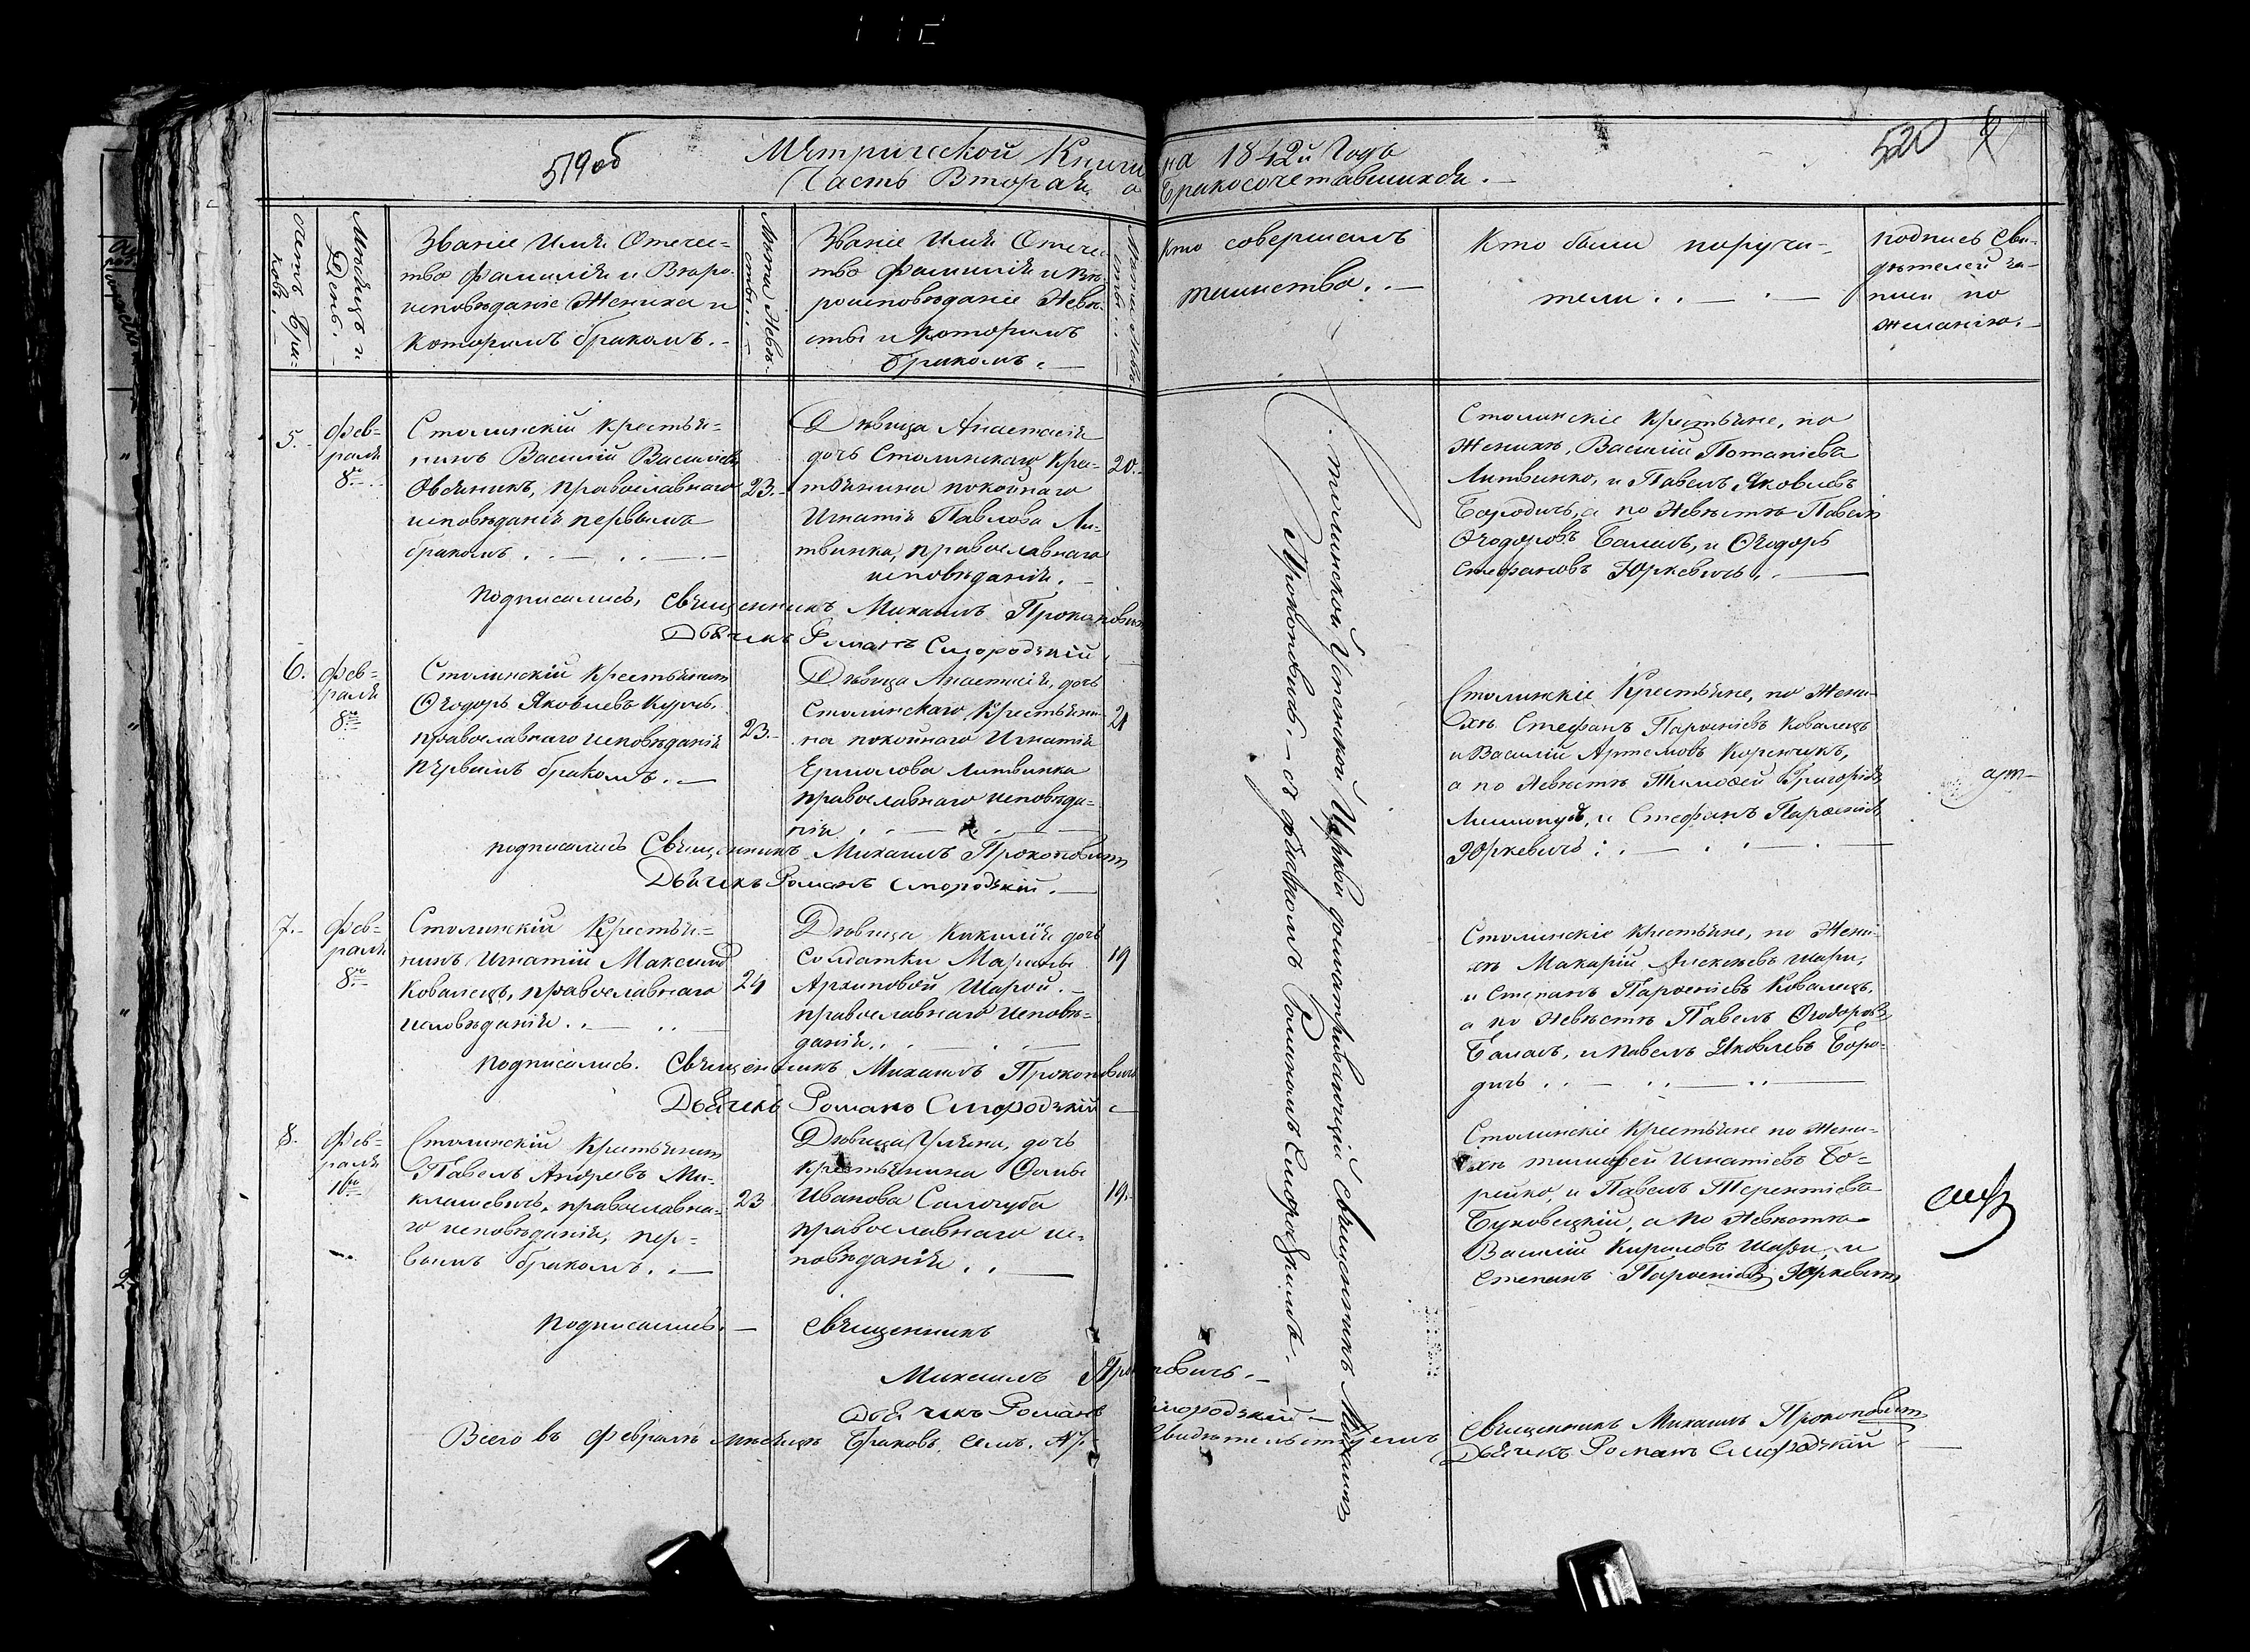 519об
Метрической Книги на 1842й Годъ
Часть Вторая о Бракосочетавшихся.
520
счетъ бра=
ковъ.
Мѣсяцъ и
День.
Званіе Имя Отече=
тво Фамилія и Вѣро=
исповѣданіе Жениха и
которимъ бракомъ.
Лѣта
Званіе Имя Отече=
тво Фамилія и Вѣ=
роисповѣданіе Невѣ=
сты и которимъ
бракомъ.
Лѣта Невѣ=
сты
Кто совершалъ
таинство.
Кто были поручи=
тели
подпись Сви=
дѣтелей за=
писи по
желанію.
5.
Фев=
раля
8го
Столинскій Крестья=
нинъ Василій Васильевъ
Овсяникъ, православнаго
исповѣданія первымъ
бракомъ.
23.
Дѣвица Анастасія
дочь Столинскаго Кре=
тянина покойнаго
Игнатія Павлова Ли=
твинка, православнаго
исповѣданія.
20.
Столинскіе Крестьяне, по
Женихѣ, Василій Потапіевъ
Литвинко, и Павелъ Яковлевъ
Бородичъ, а по Невѣстѣ Павелъ
Ѳеодоровъ Баланъ, и Ѳеодоръ
Стефановъ Юркевичъ.
Подписались, Священникъ Михаилъ Прокоповичъ
Дьячекъ Романъ Смородзкій
6.
Фев=
раля
8го
Столинскій Крестьянинъ
Ѳеодоръ Яковлевъ Курчь,
православнаго исповѣданія
первымъ бракомъ.
23.
Дѣвица Анастасія, дочь
Столинскаго Крестьяни=
на покойнаго Игнатія
Ермолова Литвинка
православнаго исповѣда=
нія
21
Столинскіе Крестьяне, по Жени=
хѣ Стефанъ Парѳеніевъ Ковалецъ
и Василій Артемовъ Коренчикъ,
а по Невѣстѣ Тимоѳей Григоріевъ
и Стефанъ Парѳеніевъ
Юркевичъ
подписались Священникъ Михаилъ Прокоповичъ
Дьячекъ Романъ Смородзкій.
7.
Фев=
раля
8го
Столинскій Крестья=
нинъ Игнатій Максимовъ
Ковалецъ, православнаго
исповѣданія.
24
Дѣвица Кикилія дочь
Солдатки Марины
Архиповой Шарой.
православнаго исповѣ=
данія.
19
Столинскіе крестьяне, по Жени=
хѣ Макарій Алексѣевъ Шари,
и Степанъ Парѳеніевъ Ковалецъ,
а по Невѣстѣ Павелъ Ѳеодоровъ
Баланъ, и Павелъ Яковлевъ Боро=
дичъ
Подписались. Священникъ Михаилъ Прокоповичъ
Дьячекъ Романъ Смородзкій
8.
Фев=
раля
10го
Столинскій Крестьянинъ
Павелъ Андреевъ Ми=
клашевичъ, православна=
го исповѣданія, пер=
вымъ бракомъ.
23
Дѣвица Уляна, дочь
крестьянина Ѳомы
Иванова Салогуба
православнаго ис=
повѣданія.
19.
Столинскіе Крестьяне по Жени=
хѣ Тимофей Игнатіевъ Бо=
рейко, и Павелъ Терентіевъ
Буковецкій, а по Невѣстѣ
Василій Кириловъ Шари, и
Степанъ Парѳеніевъ Юркевичъ
Подписались. Священникъ
Михаилъ Прокоповичъ.
Дьячекъ Романъ Смородзкій
Всего въ Февралѣ мѣсяцѣ браковъ семь. №7. Свидѣтельствуемъ
Священникъ Михаилъ Прокоповичъ
Дьячекъ Романъ Смородзкій
Столинской Успенской Церкви доматривающій Священникъ Михаилъ
Прокоповичъ. съ дьячкомъ Романомъ Смородзкимъ.